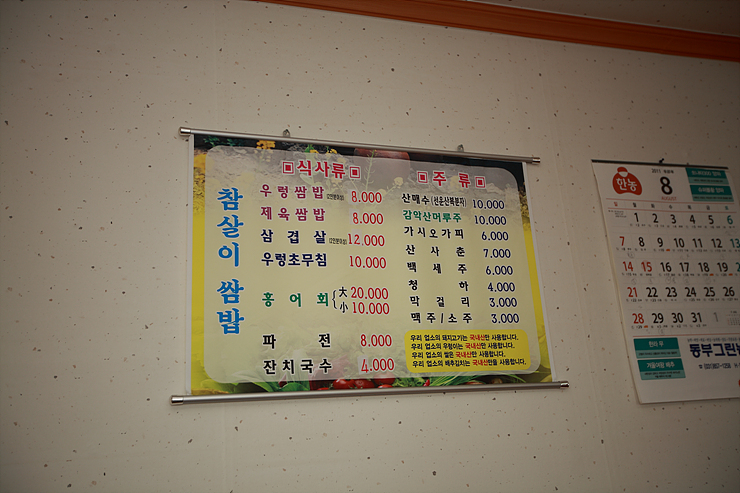 참살이 쌈밥
▣식사류▣
우렁쌈밥(2인분이상) 8.000
제육쌈밥 8.000
삼겹살(2인분이상) 12.000
우렁초무침 10.000
홍어회 { 大 20.000
小 10.000
파전 8.000
잔치국수 4.000
▣주류▣
산매수(선운산복분자) 10.000
감악산머루주 10.000
가시오가피 6.000
산사춘 7.000
백세주 6.000
청하 4.000
막걸리 3.000
맥주/소주 3.000
우리 업소의 돼지고기는 국내산만 사용합니다.
우리 업소의 우렁이는 국내산만 사용합니다.
우리 업소의 쌀은 국내산만 사용합니다.
우리 업소의 배추김치는 국내산만을 사용합니다.
한농
2011
8
AUGUST
1 2 3 4 5 6
7 8 9 10 11 12 13
14 15 16 17 18 19 20
21 22 23 24 25 26 27
28 29 30 31
동부그린